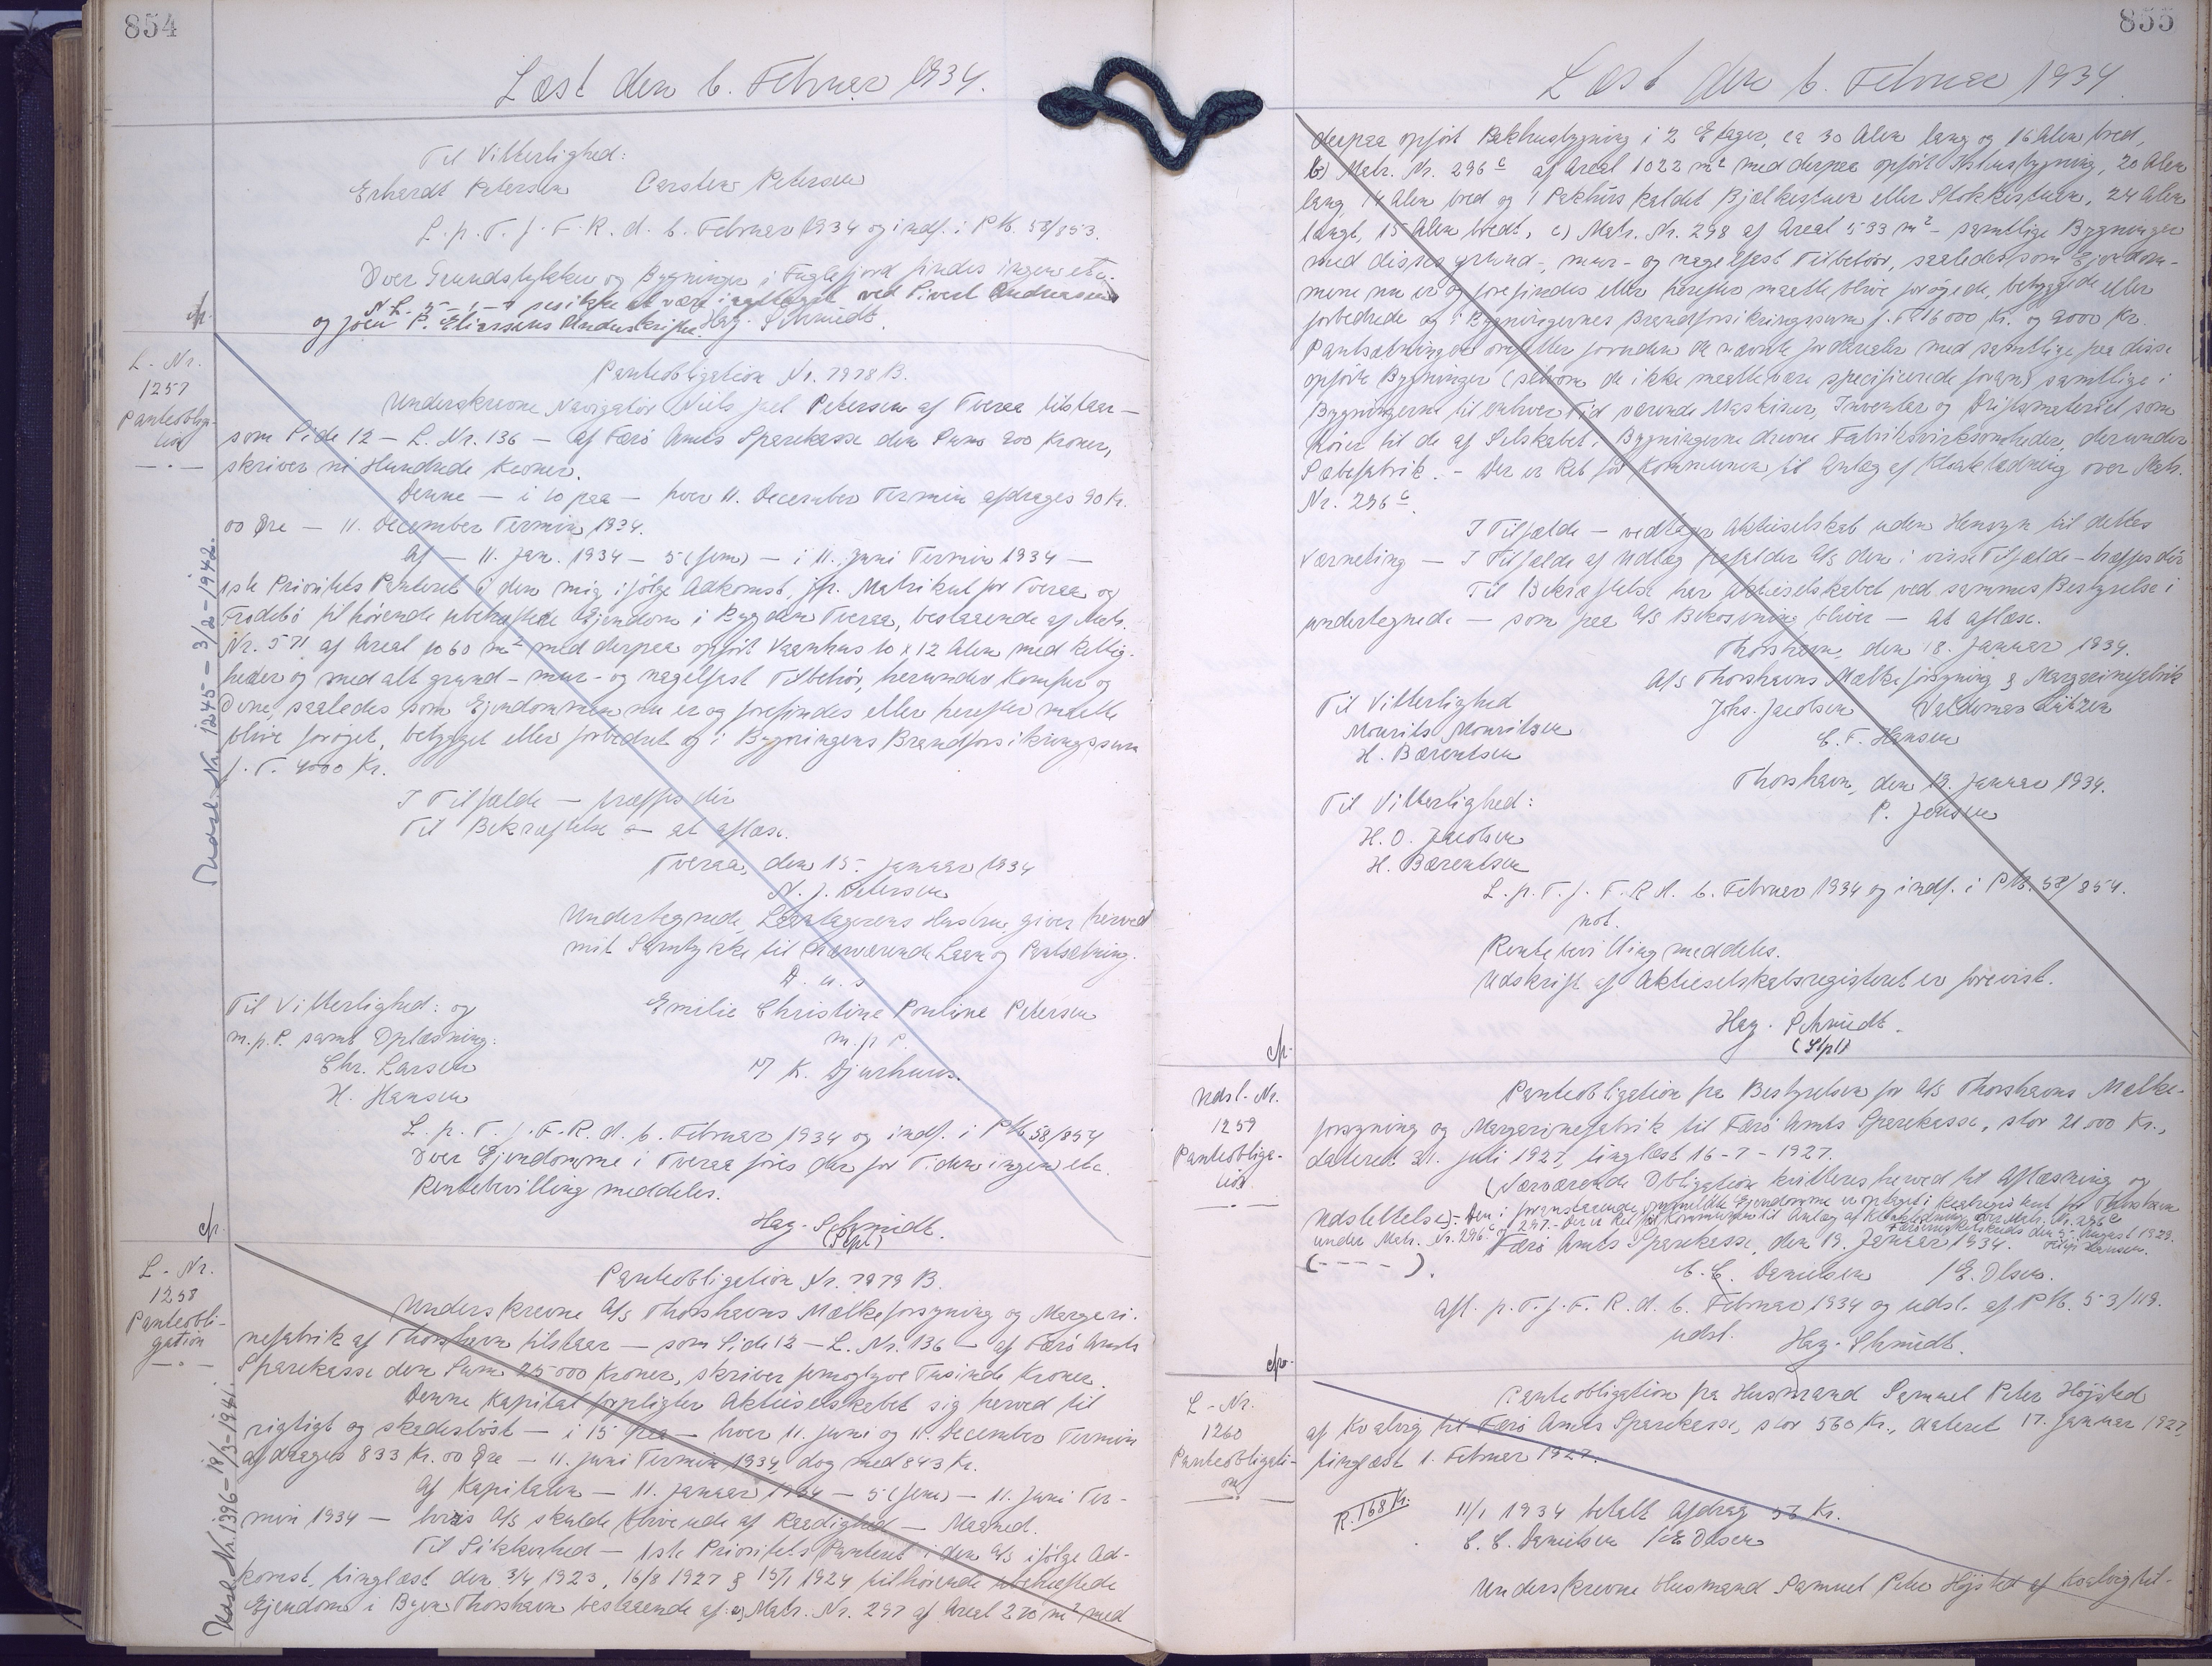 854
Læst den 6. Februar 1934.
Til Vitterlighed:
Erhardt Petersen Carsten Petersen
L. p. T. f. F. R. d. 6. Februar 1934 og indf. i P.K. 58/853.
Over Grundstykker og Bygninger i Fuglefjord findes ingen etc.
og Joen P. Eliassens Underskrifter. Haz. Schmidt.
L-Nr.
1257
Panteobliga-
tion
Udsl. Nr. 1245 - 3/2-1942.
Panteobligation Nr. 7978 B.
Underskrevne Navigatør Niels Juel Petersen af Tveraa tilstaar —
som Side 12 — L. Nr. 136 — af Færø Amts Sparekasse den Sum 900 Kroner,
skriver ni Hundrede Kroner.
Denne — i 10 paa — hver 11. December Termin afdrages 90 Kr.
00 Øre — 11. December Termin 1934.
Af — 11. Jan. 1934 — 5 (fem) — i 11. Juni Termin 1934 —
1ste Prioritets Panteret i den mig ifølge Adkomst, jfr. Matrikul for Tveraa og
Frodebø tilhørende ubehæftede Ejendom i Bygden Tveraa, bestaaende af Matr.
Nr. 571 af Areal 1060 m² med derpaa opført Vaanhus 10 x 12 Alen med Rettig-
heder og med alt grund- mur- og nagelfast Tilbehør, herunder Komfur og
Ovne, saaledes som Ejendommen nu er og forefindes eller herefter maatte
blive forøget, bebygget eller forbedret og i Bygningens Brandforsikringssum
f. T. 4000 Kr.
I Tilfælde — træffes dér
Til Bekræftelse — at aflæse.
Tveraa, den 15. Januar 1934
N. J. Petersen
Undertegnede, Laantagerens Hustru, giver herved
mit Samtykke til nærværende Laan og Pantsætning.
D. u. s
Emilie Christine Pouline Petersen
m. p. P.
M K. Djurhuus.
Til Vitterlighed: og
m. p. P. samt Oplæsning:
Chr. Larsen
H. Hansen
L. p. T. f. F. R. d. 6. Februar 1934 og indf. i P.K. 58/854
Over Ejendomme i Tveraa føres der for Tiden ingen etc.
Rentebevilling meddeles.
Haz. Schmidt.
L-Nr.
1258
Panteobli-
gation
Udsl. Nr. 1396 - 19/3-1941.
Panteobligation Nr. 7979 B.
Underskrevne A/S Thorshavns Mælkeforsyning og Margari-
nefabrik af Thorshavn tilstaar — som Side 12 — L. Nr. 136 — af Færø Amts
Sparekasse den Sum 25 000 Kroner, skriver femogtyve Tusinde Kroner.
Denne Kapital forpligter Aktieselskabet sig herved til
rigtigt og skadesløst — i 15 paa — hver 11. Juni og 11. December Termin
afdrages 833 Kr. 00 Øre — 11. Juni Termin 1934, dog med 843 Kr.
Af Kapitalen — 11. Januar 1934 — 5 (fem) — 11. Juni Ter-
min 1934 — hvis A/S skulde blive ude af Rædighed — Maaned.
Til Sikkerhed — 1ste Prioritets Panteret i den A/S ifølge Ad-
komst, tinglæst den 3/4 1923, 16/8 1927 & 19/1 1924 tilhørende ubehæftede
Ejendom i Byen Thorshavn bestaaende af: a) Matr. Nr. 297 af Areal 270 m² med
855
Læst den 6. Februar 1934
derpaa opført Pakhusbygning i 2 Etager, ca 30 Alen lang og 16 Alen bred,
b) Matr. Nr. 296 c af Areal 1022 m² med derpaa opført Ishusbygning, 20 Alen
lang, 14 Alen bred og 1 Pakhus kaldet Bjælkestuen eller Stokkestuen, 24 Alen
langt, 15 Alen bredt, c) Matr. Nr. 298 af Areal 533 m² — samtlige Bygninger
med disses grund-, mur- og nagelfast Tilbehør, saaledes som Ejendom-
mene nu er og forefindes eller herefter maatte blive forøgede, bebyggede eller
forbedrede og i Bygningernes Brandforsikringssum f. T. 16000 Kr. og 9000 Kr.
Pantsætningen omfatter foruden de nævnte Jordarealer med samtlige paa disse
opførte Bygninger (selvom de ikke maatte være specificerede foran) samtlige i
Bygningerne til enhver Tid værende Maskiner, Inventar og Driftsmateriel som
hører til de af Selskabet i Bygningerne drevne Fabriksvirksomheder, derunder
Sæbefabrik. — Der er Ret for Kommunen til Anlæg af Kloakledning over Matr.
Nr. 296 c.
I Tilfælde — vedtager Aktieselskab uden Hensyn til dettes
Værneting — I Tilfælde af Udlæg frafalder A/S den i visse Tilfælde — træffes dér
Til Bekræftelse har Aktieselskabet ved sammes Bestyrelse i
undertegnede — som paa A/S Bekostning bliver — at aflæse.
Thorshavn, den 18. Januar 1934.
A/S Thorshavns Mælkeforsyning & Margarinefabrik
Johs. Jacobsen Valdemar Lützen
E. F. Hansen
Til Vitterlighed
Mourits Mouritsen
H. Bærentsen
Thorshavn, den 19. Januar 1934.
P. Jensen
Til Vitterlighed:
H. O. Jacobsen
H. Bærentsen
L. p. T. f. F. R. d. 6. Februar 1934 og indf. i P.K. 58/854.
not.
Rentebevilling meddeles.
Udskrift af Aktieselskabsregisteret er forevist.
Haz. Schmidt.
Udsl.-Nr.
1259
Panteobliga-
tion
Panteobligation fra Bestyrelsen for A/S Thorshavns Mælke-
forsyning og Margarinefabrik til Færø Amts Sparekasse, stor 21 000 Kr.,
dateret 21. Juli 1927, tinglæst 16-7-1927.
(Nærværende Obligation kvitteres herved til Aflæsning og
Udslettelse). Den i foranstaaende ommeldte Ejendomme er optaget i Realregistret for Thorshavn
under Matr. Nr. 296 c og 297. — Der er Ret for Kommunen til Anlæg af Kloakledning over Matr. Nr. 296 c
Færø Amts Sparekasse, den 19. Januar 1934.
(- - - -).
C. C. Danielsen / E. Olsen.
Afl. p. T. f. F. R. d. 6. Februar 1934 og udsl. af P.K. 53/119.
udsl. Haz. Schmidt.
L-Nr.
1260
Panteobligati-
on
Panteobligation fra Husmand Samuel Peter Højsted
af Kvalvig til Færø Amts Sparekasse, stor 560 Kr., dateret 17. Januar 1927,
tinglæst 1. Februar 1927.
R. 168 Kr.
11/1 1934 betalt Afdrag 56 Kr.
C. C. Danielsen / E Olsen
Underskrevne Husmand Samuel Peter Højsted af Kvalvig til-